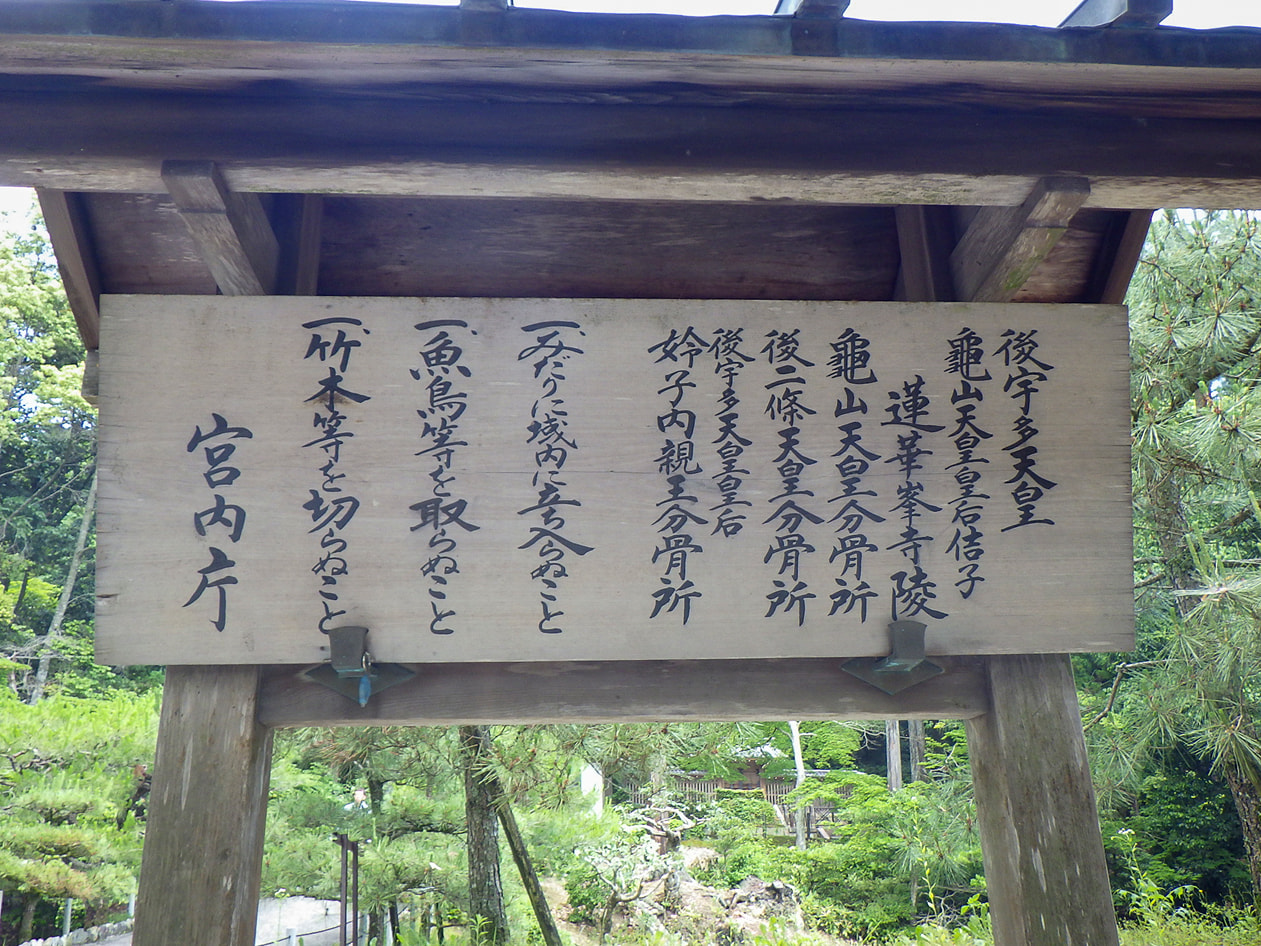 後宇多天皇
龜山天皇皇后佶子
蓮華峯寺陵
龜山天皇分骨所
後二條天皇分骨所
後宇多天皇皇后
姈子内親王分骨所
一、みだりに域内に立ち入らぬこと
一、魚鳥等を取らぬこと
一、竹木等を切らぬこと
宮内庁